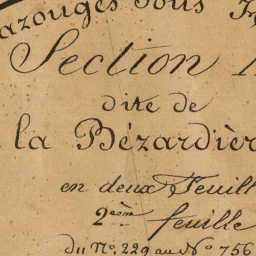 azouges sous
Section
dite de
la Bézardièr
en deux Feuill
2ème feuille
du No. 229 au No 756